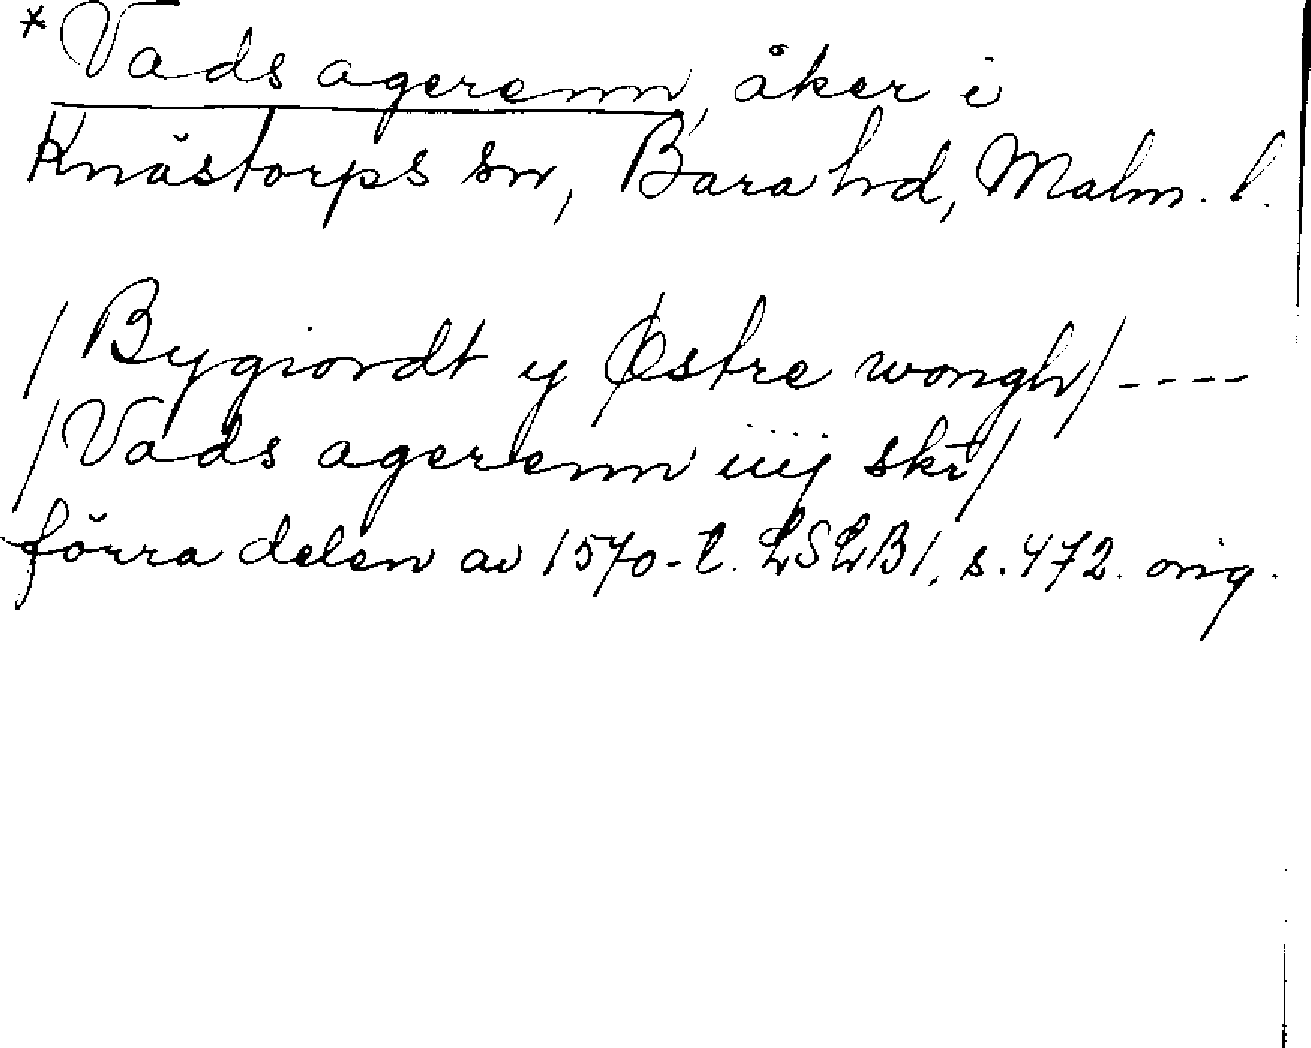 *Vads agerenn, åker i
Knästorps sn, Bara hd, Malm. l.
/Bygiordt y Østre wongh/ ----
/Vads agerenn iiij skr/
förra delen av 1570-t. LSLB 1, s. 472. orig.